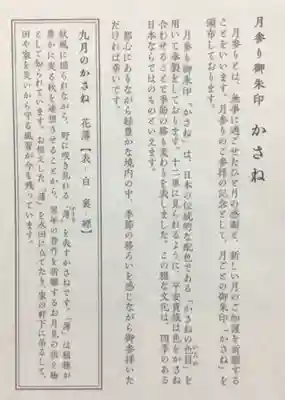 月参り御朱印 かさね
月参りとは、無事に過ごせたひと月の感謝と、新しい月のご加護を祈願する
ことをいいます。月参りのご参拝の記念として、月ごとの御朱印「かさね」を
頒布しております。
月参り御朱印「かさね」は、日本の伝統的な配色である「かさねの色目」を
いろめ
用いて奉製をしております。十二単に見られるように、平安貴族は色をかさね
合わせることで季節の移り変わりを表しました。この雅な文化は、四季のある
日本ならではのものといえます。
都心にありながら緑豊かな境内の中、季節の移ろいを感じながら御参拝いた
だければ幸いです。
九月のかさね 花薄【表-白 裏-縹】
秋風に揺られながら、野に咲き乱れる「薄」を表すかさねです。「薄」は稲穂が
豊かに実る秋を連想させることから、翌年の豊作を祈願するお月見の供え物
として知られています。お供えした「薄」を水田に立てたり、家の軒下に吊るして、
田や家を災いから守る風習が今も残っています。